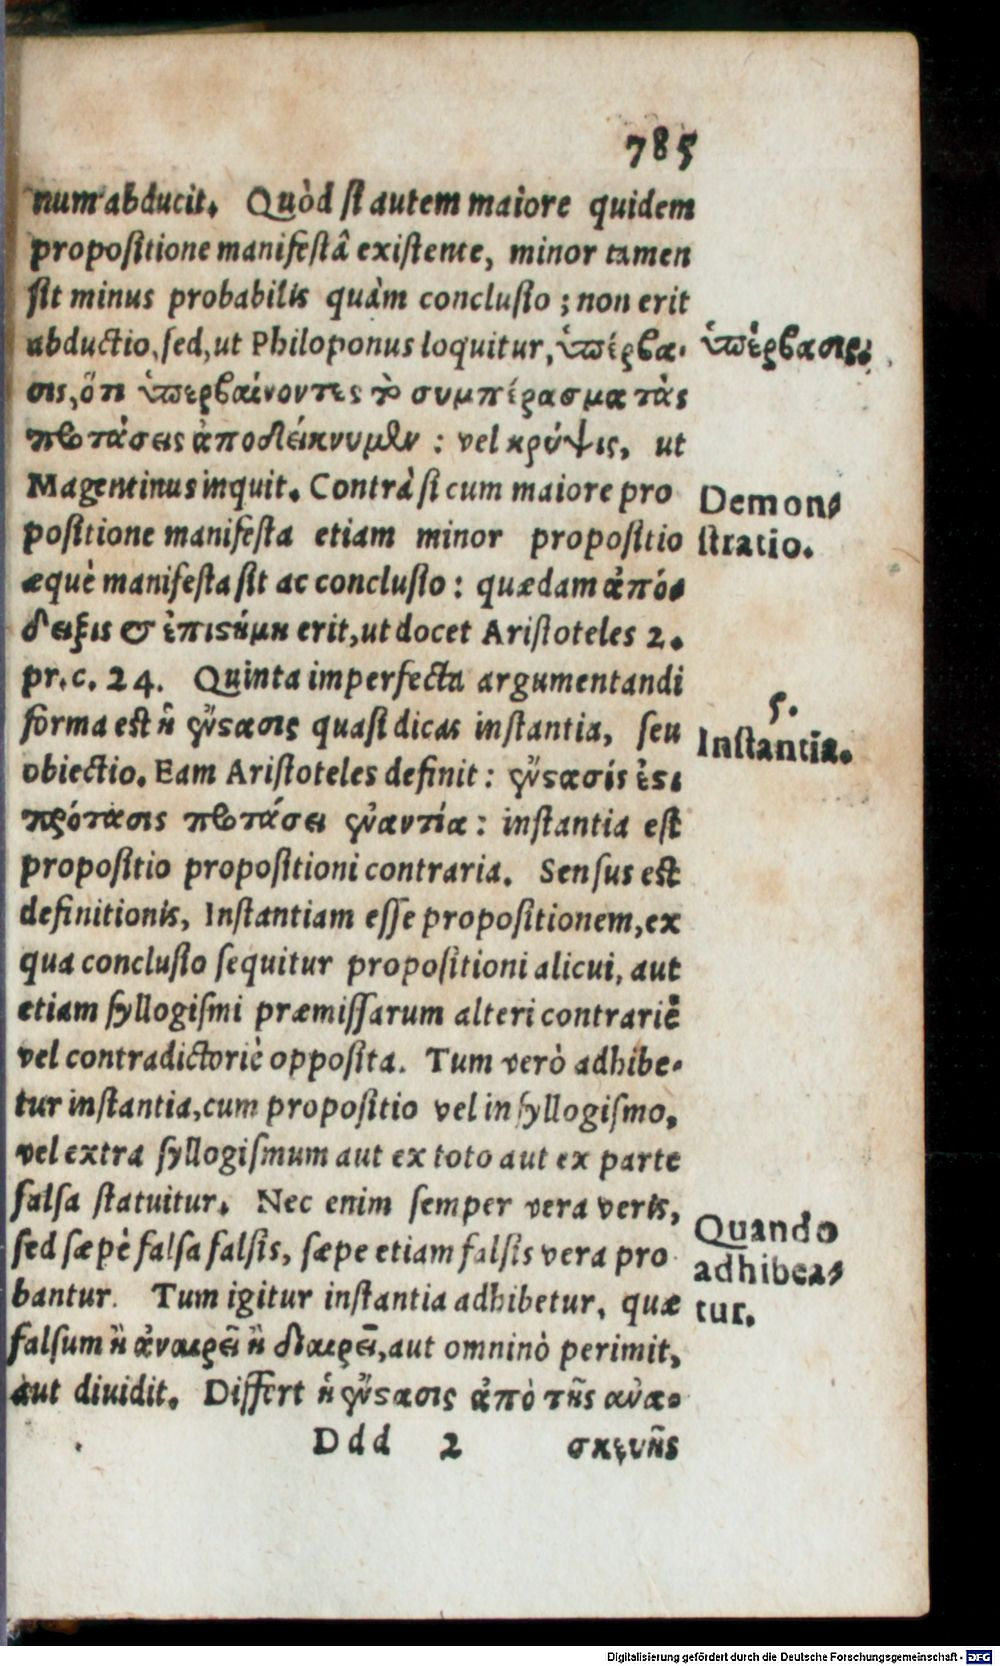 785
num abducit. Quòd si autem maiore quidem
propositione manifestâ existente, minor tamen
sit minus probabilis quàm conclusio; non erit
abductio, sed, ut Philoponus loquitur, ὑπέρβα-
ὑπέρβασις.
σις, ὅτι ὑπερβαίνοντες τὸ συμπέρασμα τὰς
προτάσεις ἀποδείκνυμεν : vel κρύψις, ut
Magentinus inquit. Contrà si cum maiore pro
positione manifesta etiam minor propositio
Demon-
stratio.
æquè manifesta sit ac conclusio : quædam ἀπό-
δειξις & ἐπιστήμη erit, ut docet Aristoteles 2.
pr. c. 24. Quinta imperfecta argumentandi
forma est ἡ ἔνστασις quasi dicas instantia, seu
5.
Instantia.
obiectio. Eam Aristoteles definit : ἔνστασίς ἐστι
πρότασις προτάσει ἐναντία : instantia est
propositio propositioni contraria. Sensus est
definitionis, Instantiam esse propositionem, ex
qua conclusio sequitur propositioni alicui, aut
etiam syllogismi præmissarum alteri contrariè
vel contradictoriè opposita. Tum verò adhibe-
tur instantia, cum propositio vel in syllogismo,
vel extra syllogismum aut ex toto aut ex parte
falsa statuitur. Nec enim semper vera veris,
sed sæpè falsa falsis, sæpe etiam falsis vera pro
Quando
adhibea-
tur.
bantur. Tum igitur instantia adhibetur, quæ
falsum ἢ ἀναιρεῖ ἢ διαιρεῖ, aut omninò perimit,
aut diuidit. Differt ἡ ἔνστασις ἀπὸ τῆς ἀνα-
Ddd 2 σκευῆς
Digitalisierung gefördert durch die Deutsche Forschungsgemeinschaft - DFG